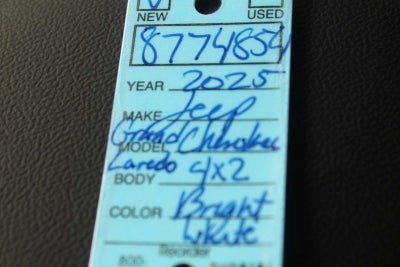 NEW USED
8774854
YEAR 2025
MAKE Jeep
MODEL Grand Cherokee
Laredo
BODY 4x2
COLOR Bright
White
Reorder
800-